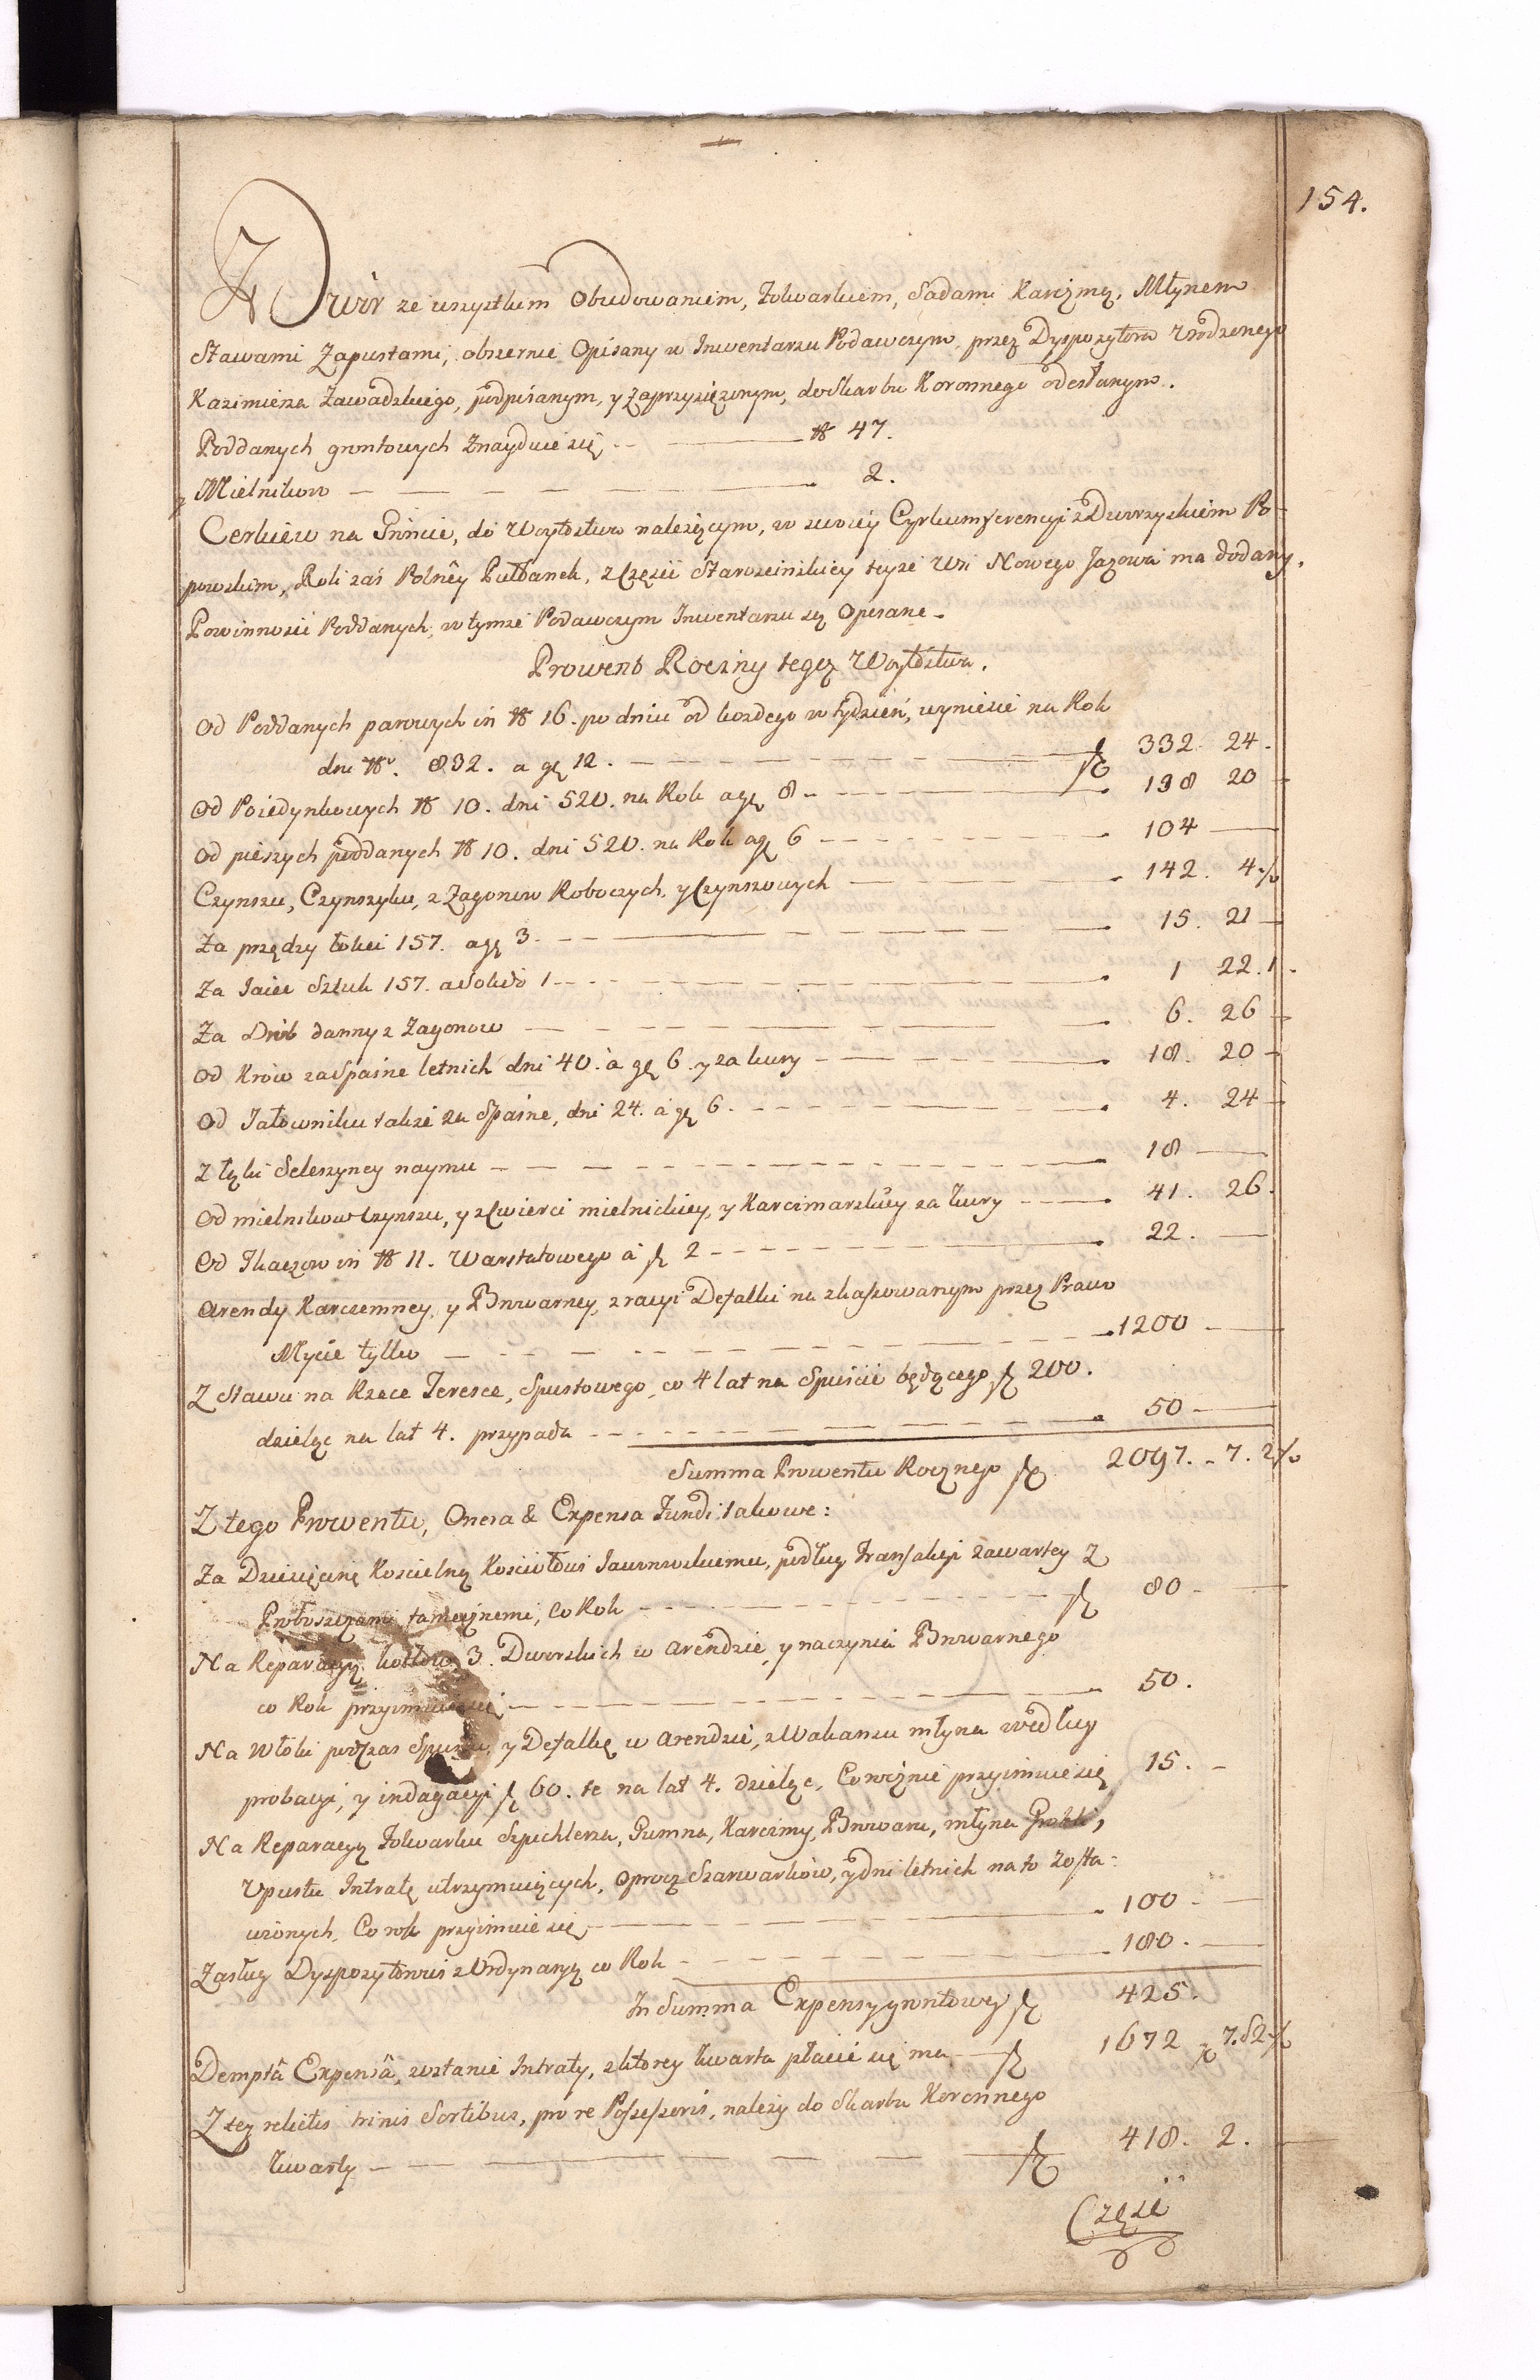 154.
Dwór ze wszystkim Obudowaniem, Folwarkiem, Sadami Karczmą, Młynem
Stawami Zapustami, obszernie Opisany w Inwentarzu Podawczym, przez Dyspozytora Urodzonego
Kazimierza Zawadzkiego, podpisanym, y zaprzysiężonym, do Skarbu Koronnego odesłanym.
Poddanych grontowych Znayduie się — № 47.
Mielnikow — 2.
Cerkiew na Gruncie, do Woytostwa należącym, w swoiey Cyrkumferencyi z Dworzyskiem Po-
powskim, Roli zaś Polney Pułłanek, z Części Starościńskiey teyże Wsi Nowego Jazowa ma dodany.
Powinnosci Poddanych, w tymże Podawczym Inwentarzu są Opisane.
Prowent Roczny tegoż Woytostwa.
Od Poddanych parowych in № 16. po dniu od każdego w tydzień, wyniesie na Rok
dni № 832. a gr 12. — 332. 24.
Od Poiedynkowych № 10. dni 520. na Rok a gr 8 — 138 20
Od pieszych poddanych № 10. dni 520. na Rok a gr 6 — 104 —
Czynszu, Czynszyku, z Zagonow Roboczych, y Czynszowych — 142. 4
Za przędzy łokci 157. a gr 3. — 15. 21
Za Jaiec Sztuk 157. a Solido 1 — 1 22. 1.
Za Drób danny z Zagonow — 6. 26
Od Krów za Spaśne letnich dni 40. à gr 6. y za kury — 18. 20
Od Jałowniku także za Spaśne, dni 24. à gr 6. — 4. 24
Z łąki Seleszyney naymu — 18 —
Od mielnikow Czynszu, y z Cwierci mielnickiey, y Karczmarskiey za kury — 41. 26.
Od Tkaczow in № 11. Warstatowego à 2 — 22. —
Arendy Karczemney, y Browarney, z racyi Defalki na skassowanym przez Prawo
Mycie tylko — 1200 —
Z Stawu na Rzece Teresce, Spustowego, co 4 lat na Spuscie będącego 200.
dzieląc na lat 4. przypada — 50 —
Summa Prowentu Rocznego 2097. 7. 2
Z tego Prowentu, Onera & Expensa Fundi takowe:
Za Dziesięcinę Koscielną Kosciołowi Jaworowskiemu, podług Transakcyi zawartey z
Proboszczami tameyznemi, co Rok — 80 —
Na Reparacyą kotłow 3. Dworskich w arendzie, y naczynia Browarnego
co Rok przyimuie się — 50.
Na Włoki podczas Spustu, y Defalkę w arendzie, z Wakansu młyna według
probacyi, y indagacyi 60. te na lat 4. dzieląc, Corocznie przyimuie się 15. —
Na Reparacyą Folwarku Szpichlerza, Gumna, Karczmy, Browaru, młyna Grobli,
Upustu Intratę utrzymuiących, oprocz Szarwarkow, y dni letnich na to zosta-
wionych, Co rok przyimuie się — 100 —
Zasług Dyspozytorowi z Ordynaryą co Rok — 180. —
In Summa Expensy grontowey 425.
Demptâ Expensâ, zostanie Intraty, z ktorey kwarta płacić się ma — 1672 7. 2
Z tey relictis trinis Sortibus, pro re Possessoris, należy do Skarbu Koronnego
kwarty — 418. 2.
Część